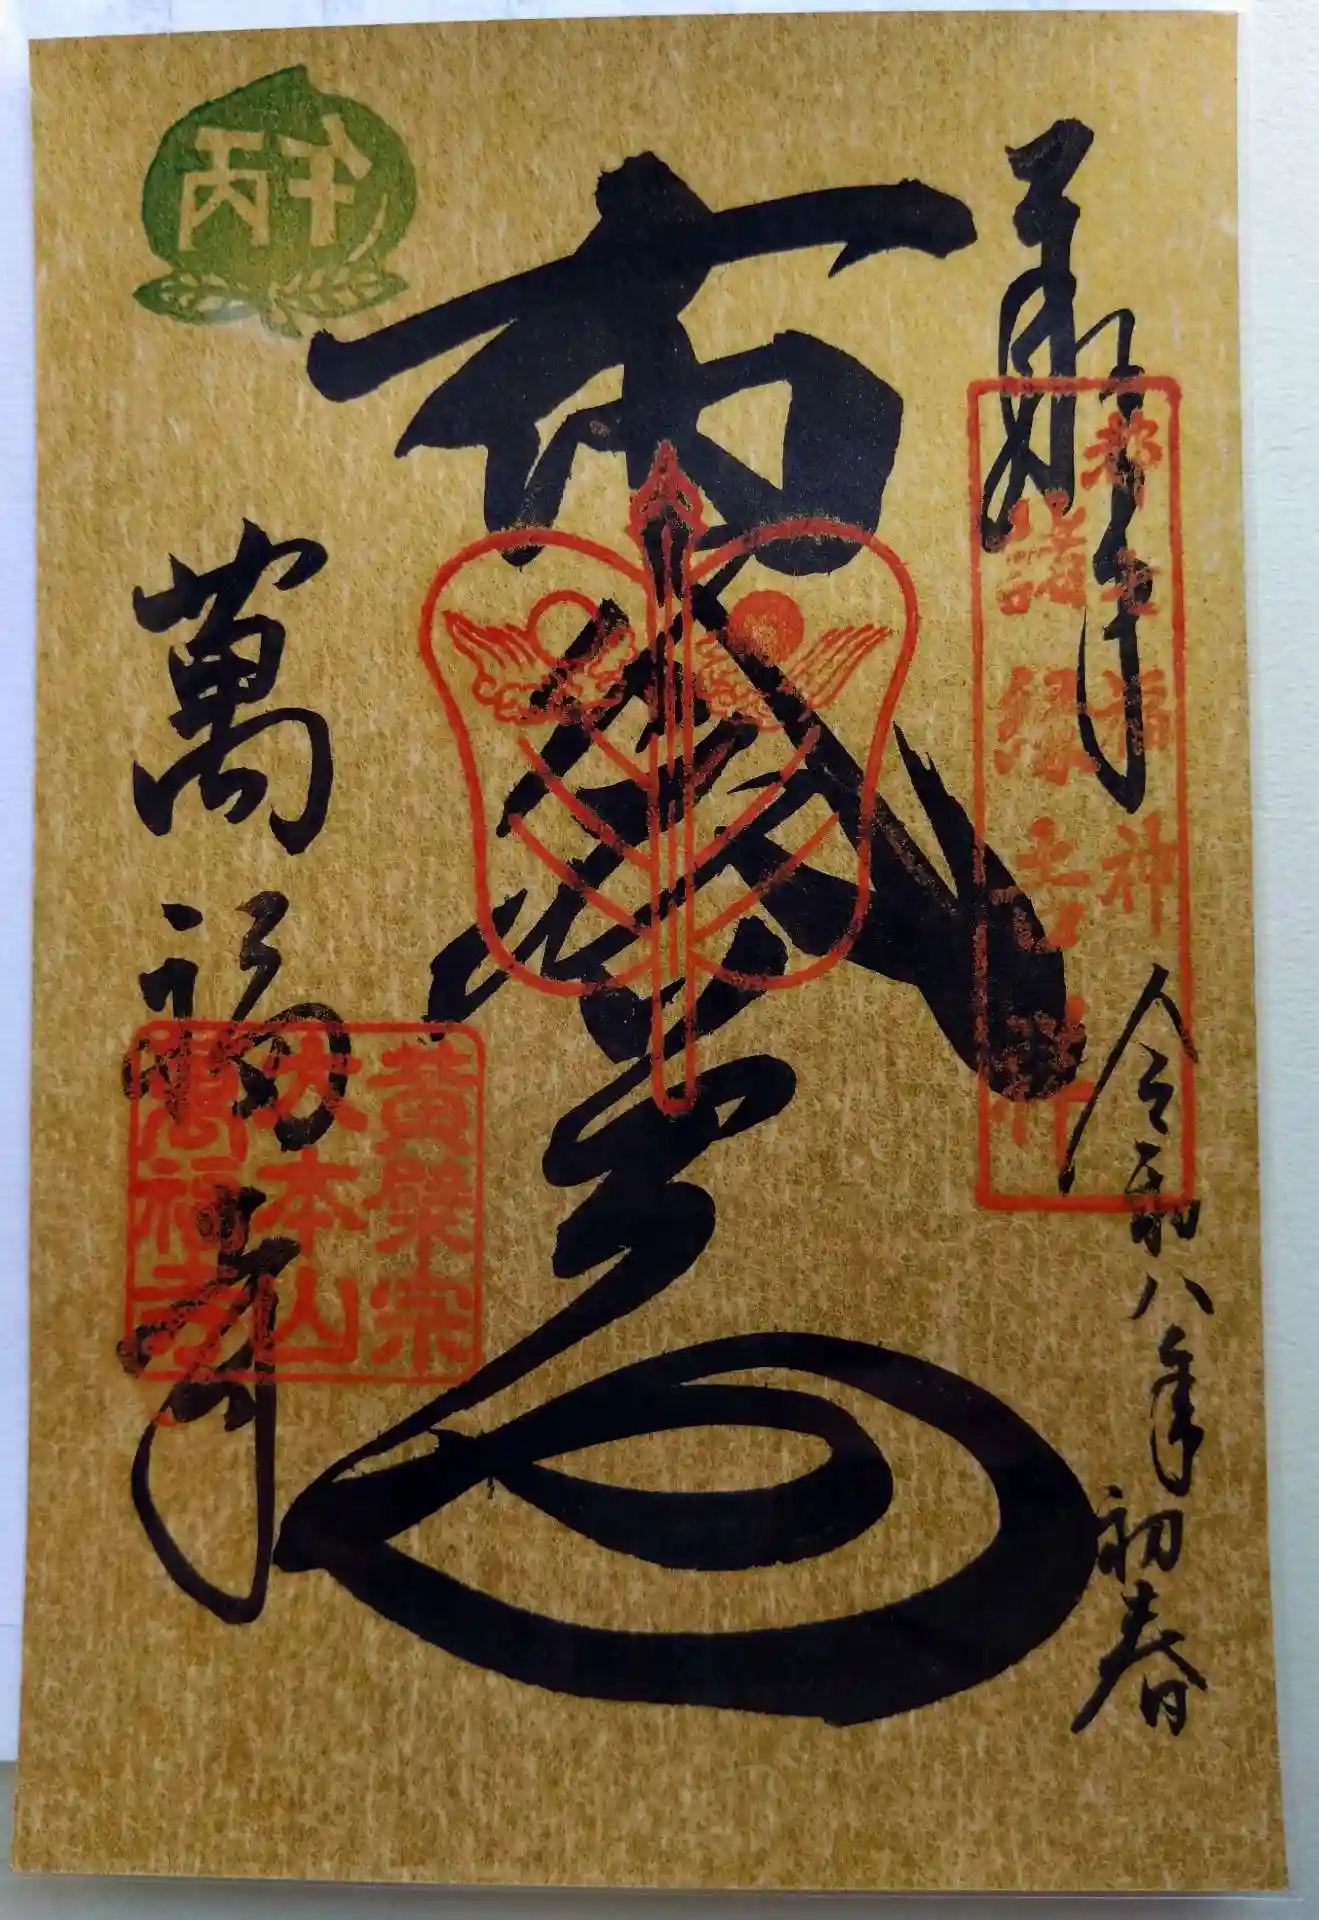 丙午
奉拝
令和八年初春
都七福神
諸縁吉祥
布袋尊
萬福寺
黄檗宗
大本山
萬福寺